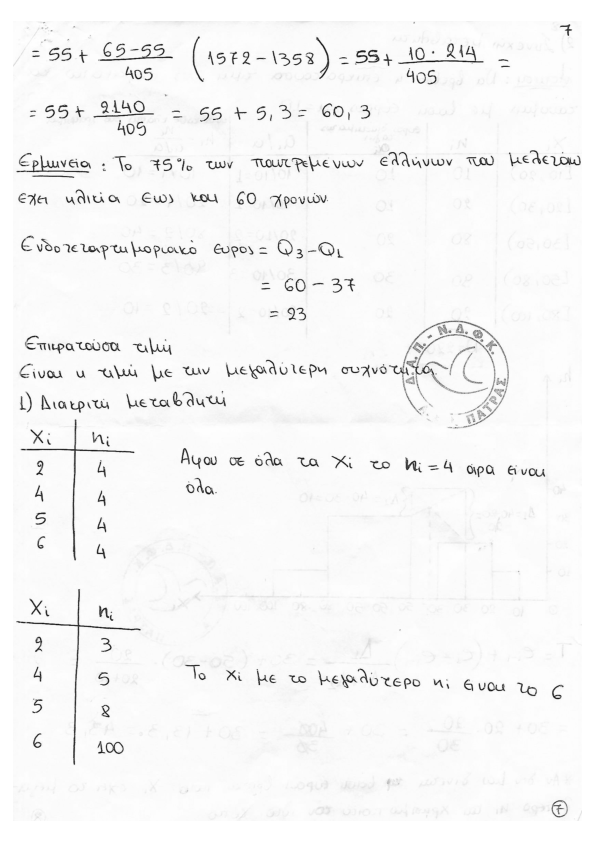 7
= 55 + 65-55/405 (1572 - 1358) = 55 + 10 · 214/405 =
= 55 + 2140/405 = 55 + 5,3 = 60,3
Ερμηνεία : Το 75% των παντρεμενων ελλήνων που μελεταω
εχει ηλικία εως και 60 χρονών.
Ενδοτεταρτημοριακό ευρος = Q3 - Q1
= 60 - 37
= 23
Επικρατούσα τιμή
Είναι η τιμή με την μεγαλύτερη συχνότητα.
Δ.Α.Π. - Ν.Δ.Φ.Κ. ΠΑΤΡΑΣ
1) Διακριτή μεταβλητή
Xi ni
2 4
4 4
5 4
6 4
Αφου σε όλα τα Xi το ni = 4 αρα ειναι
όλα.
Xi ni
2 3
4 5
5 8
6 100
Το Xi με το μεγαλύτερο ni ειναι το 6
7